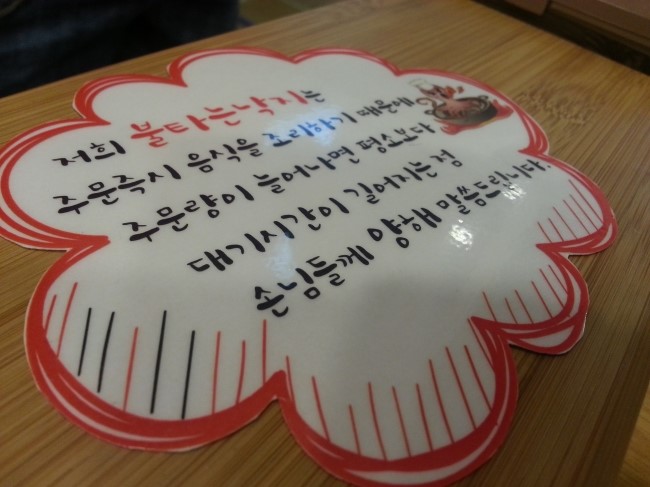 저희 불타는낙지는
주문즉시 음식을 조리하기 때문에
주문량이 늘어나면 평소보다
대기시간이 길어지는점
손님들께 양해 말씀드립니다.